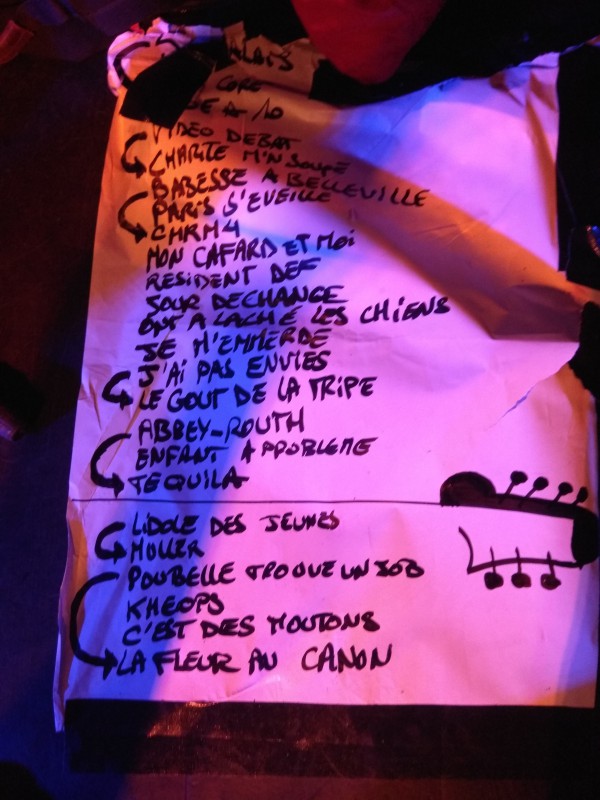 CORE
A 10
VIDEO DEBAT
CHARITE M'N SOUPE
BABESSE A BELLEVILLE
PARIS S'EVEILLE
CHRM4
MON CAFARD ET MOI
RESIDENT DEF
SOUR DECHANGE
ONT A LACHE LES CHIENS
JE M'EMMERDE
J'AI PAS ENVIES
LE GOUT DE LA TRIPE
ABBEY-ROUTH
ENFANT A PROBLEME
TEQUILA
LIDOLE DES JEUNES
MULLER
POUBELLE TROQUE UN JOB
KHEOPS
C'EST DES MOUTONS
LA FLEUR AU CANON